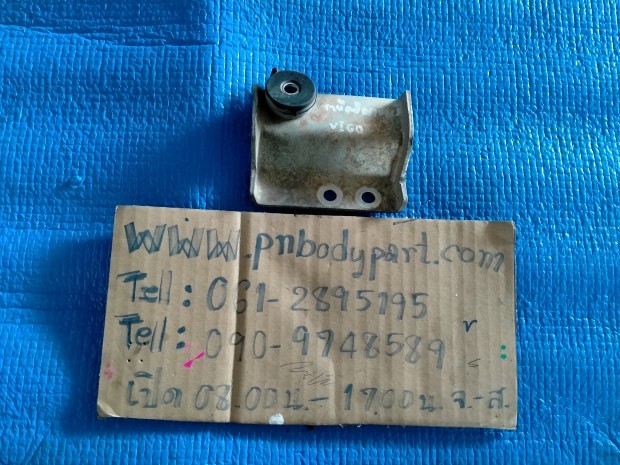 VIGO
www.pnbodypart.com
Tell : 061-2895195
Tell : 090-9748589
เปิด 08.00น.- 17.00น. จ.-ส.